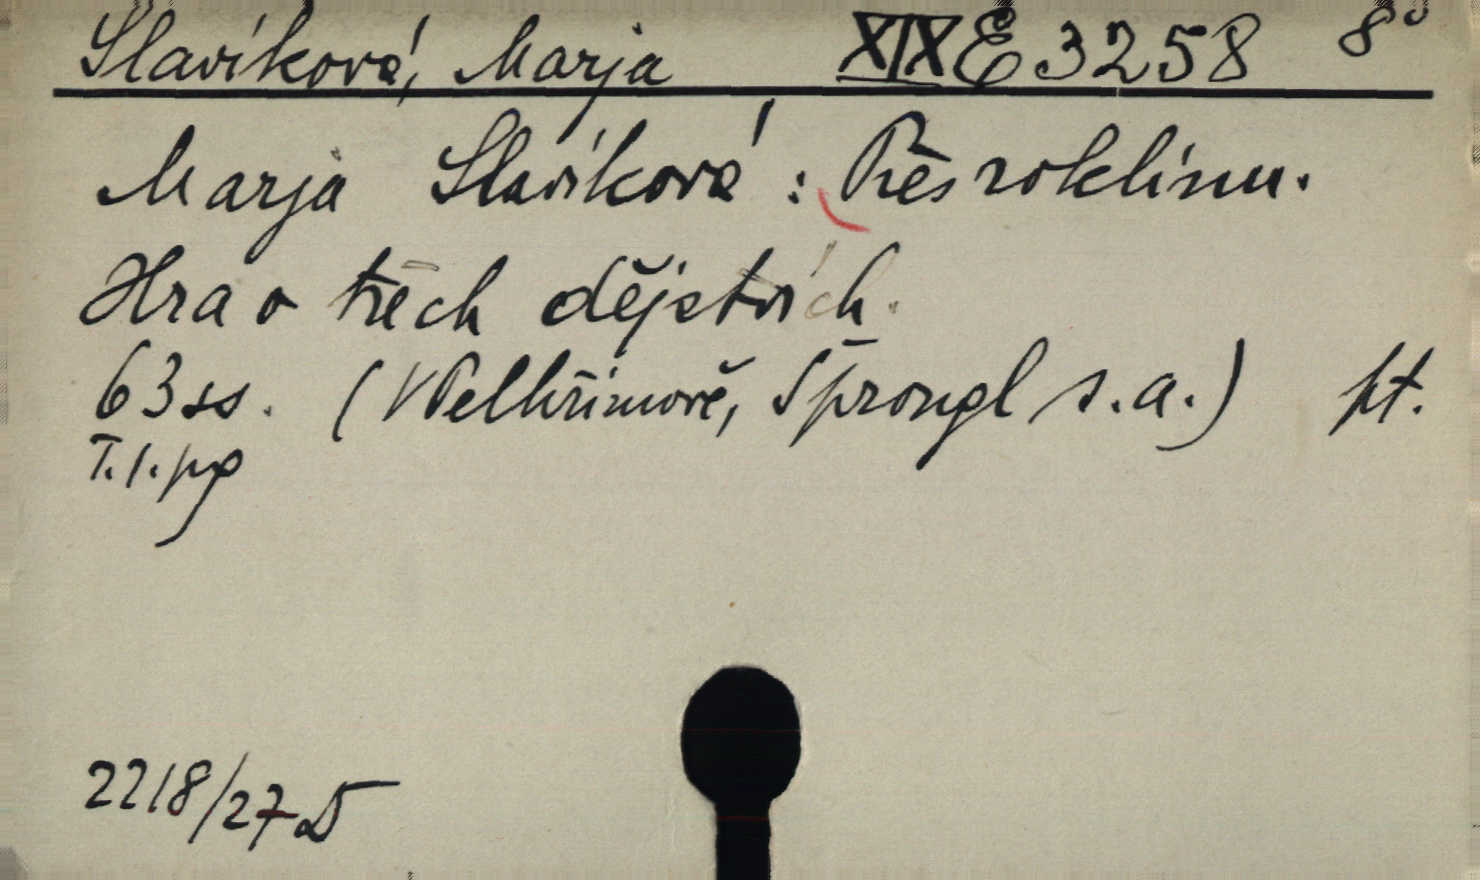 Slavíková, Marja XIX E 3258 8°
Marja Slavíková: Přes roklinu.
Hra o třech dějstvích.
63 ss. (V Pelhřimově, Šprongl s.a.) pt.
T.1.pg
2218/27 D